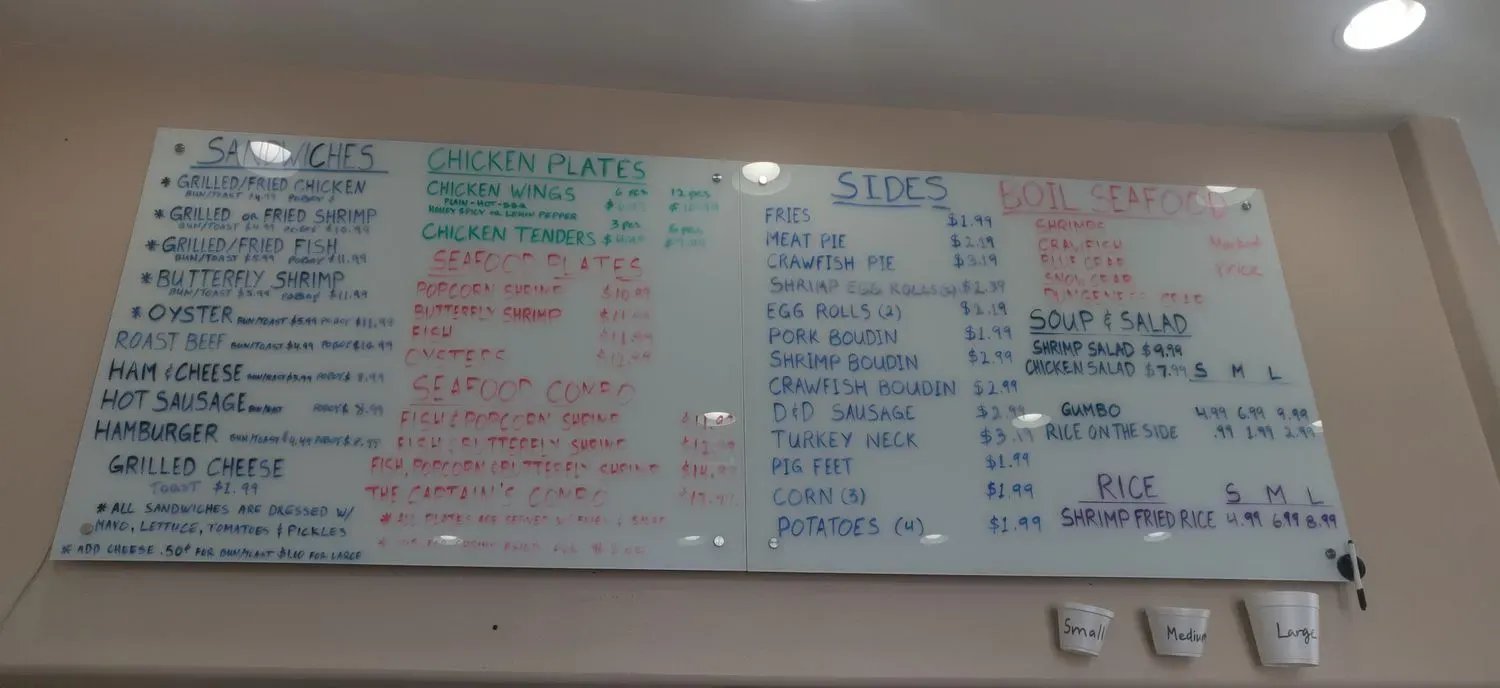 SANDWICHES
* GRILLED/FRIED CHICKEN
BUN/TOAST $4.99 POBOY $
* GRILLED OR FRIED SHRIMP
BUN/TOAST $4.99 POBOY $10.99
* GRILLED/FRIED FISH
BUN/TOAST $5.99 POBOY $11.99
* BUTTERFLY SHRIMP
BUN/TOAST $5.99 POBOY $11.99
* OYSTER BUN/TOAST $5.99 POBOY $11.99
ROAST BEEF BUN/TOAST $4.99 POBOY $10.99
HAM & CHEESE BUN/TOAST $3.99 POBOY $ 8.99
HOT SAUSAGE BUN/TOAST POBOY $ 8.99
HAMBURGER BUN/TOAST $4.49 POBOY $ 8.99
GRILLED CHEESE
TOAST $1.99
* ALL SANDWICHES ARE DRESSED W/
MAYO, LETTUCE, TOMATOES & PICKLES
* ADD CHEESE .50¢ FOR BUN/TOAST $1.00 FOR LARGE
CHICKEN PLATES
CHICKEN WINGS 6 pcs 12 pcs
PLAIN - HOT - BBQ
HONEY SPICY OR LEMON PEPPER
3 pcs
CHICKEN TENDERS
SEAFOOD PLATES
POPCORN SHRIMP $10.99
BUTTERFLY SHRIMP $11.99
FISH $11.99
OYSTERS $12.99
SEAFOOD COMBO
FISH & POPCORN SHRIMP $11.99
FISH & BUTTERFLY SHRIMP
FISH, POPCORN & BUTTERFLY SHRIMP
THE CAPTAIN'S COMBO
* ALL PLATES ARE SERVED W/ FRIES & SALAD
SIDES
FRIES $1.99
MEAT PIE $2.19
CRAWFISH PIE $3.19
SHRIMP EGG ROLLS $2.39
EGG ROLLS (2) $2.19
PORK BOUDIN $1.99
SHRIMP BOUDIN $2.99
CRAWFISH BOUDIN $2.99
D&D SAUSAGE $2.99
TURKEY NECK $3.19
PIG FEET $1.99
CORN (3) $1.99
POTATOES (4) $1.99
BOIL SEAFOOD
SHRIMPS
CRAWFISH Market
BLUE CRAB Price
SNOW CRAB
DUNGENESS CRAB
SOUP & SALAD
SHRIMP SALAD $9.99
CHICKEN SALAD $7.99
S M L
GUMBO 4.99 6.99 9.99
RICE ON THE SIDE .99 1.99 2.99
RICE S M L
SHRIMP FRIED RICE 4.99 6.99 8.99
Small
Medium
Large